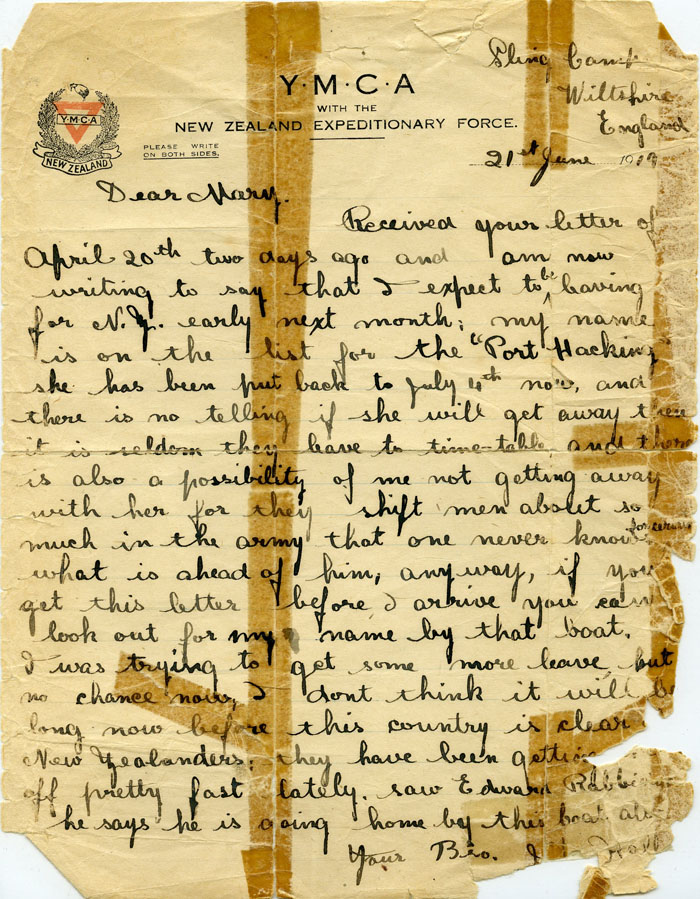 Y·M·C·A
WITH THE
NEW ZEALAND EXPEDITIONARY FORCE.
Y·M·C·A
NEW ZEALAND
PLEASE WRITE
ON BOTH SIDES.
Sling Camp
Wiltshire
England
21st June 1919
Dear Mary.
Received your letter of
April 20th two days ago and am now
writing to say that I expect to be leaving
for N.Z. early next month; my name
is on the list for the "Port Hacking"
she has been put back to July 4th now, and
there is no telling if she will get away then
it is seldom they leave to time-table, and there
is also a possibility of me not getting away
with her for they shift men about so
much in the army that one never knows for certain
what is ahead of him, anyway, if you
get this letter before I arrive you can
look out for my name by that boat.
I was trying to get some more leave but
no chance now, I dont think it will be
long now before this country is clear
New Zealanders; they have been getting
off pretty fast lately. saw Edward
he says he is going home by this boat also
Your Bro.